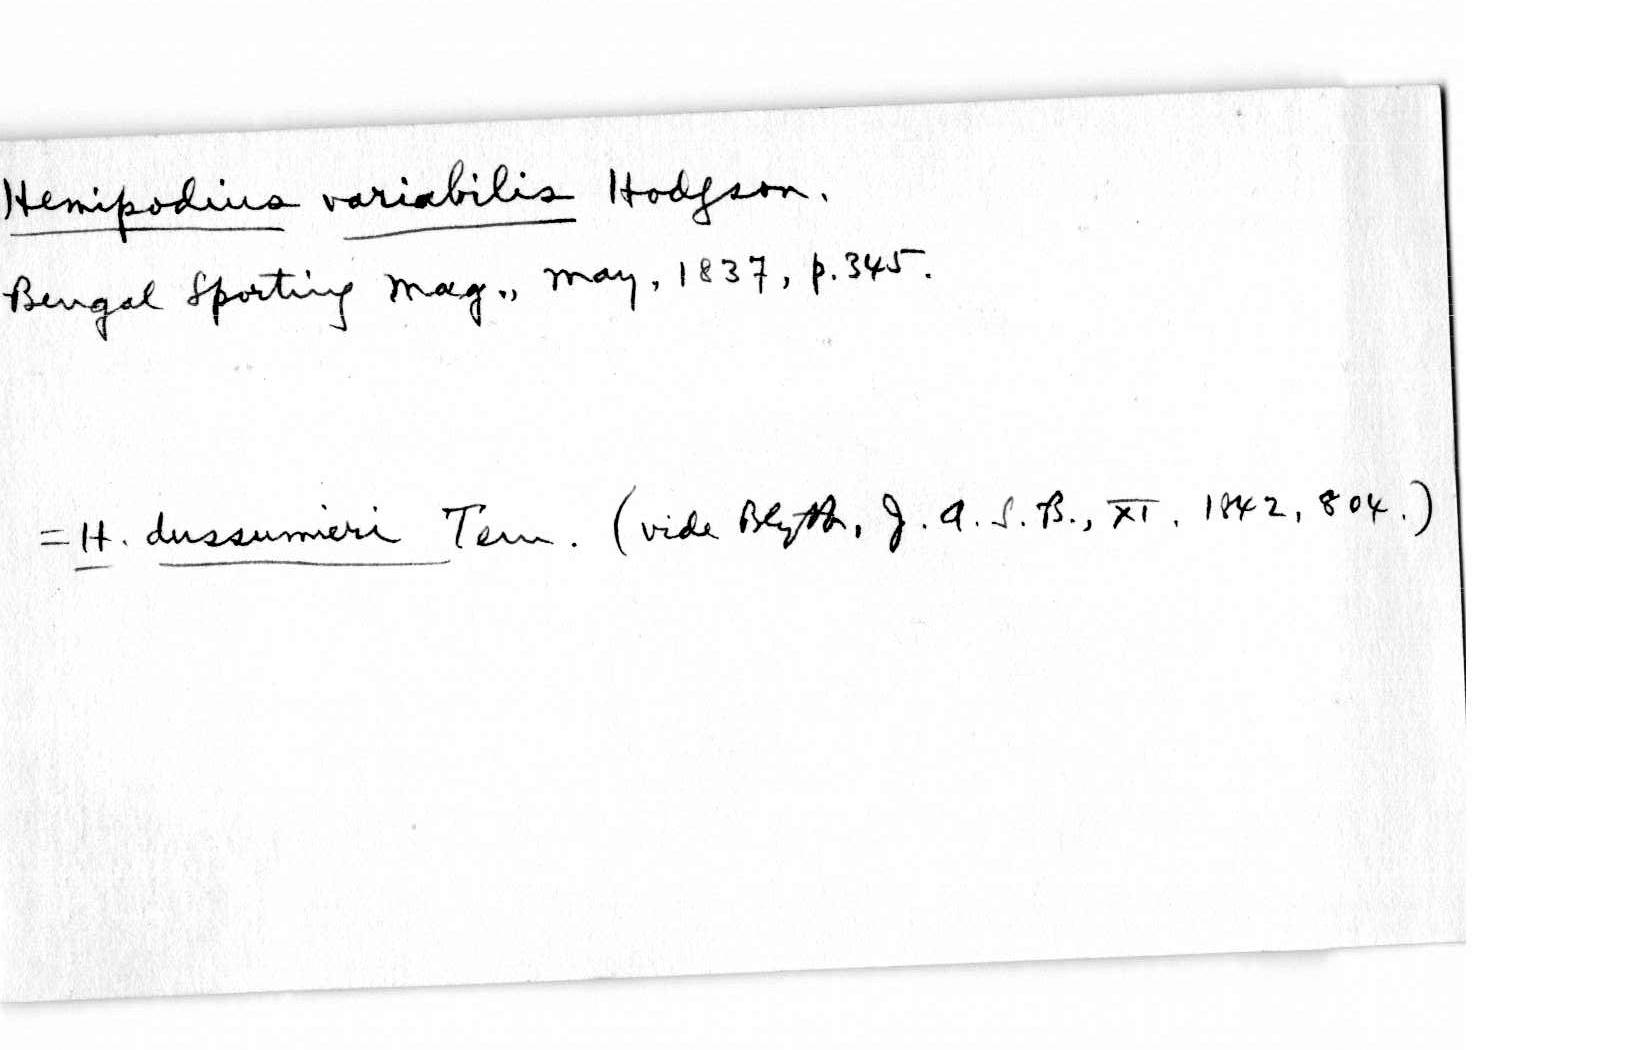 Hemipodius variabilis Hodgson.
Bengal Sporting Mag., May, 1837, p. 345.
= H. dussumieri Tem. (vide Blyth, J. A. S. B., XI, 1842, 804.)